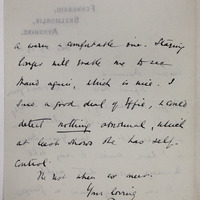 a warm & comfortable one. Staying
longer will enable me to see
again, which is nice. I
saw a good deal of Effie, & could
detect nothing abnormal, which
at least shows she has self-
control.
when we meet.
Your loving